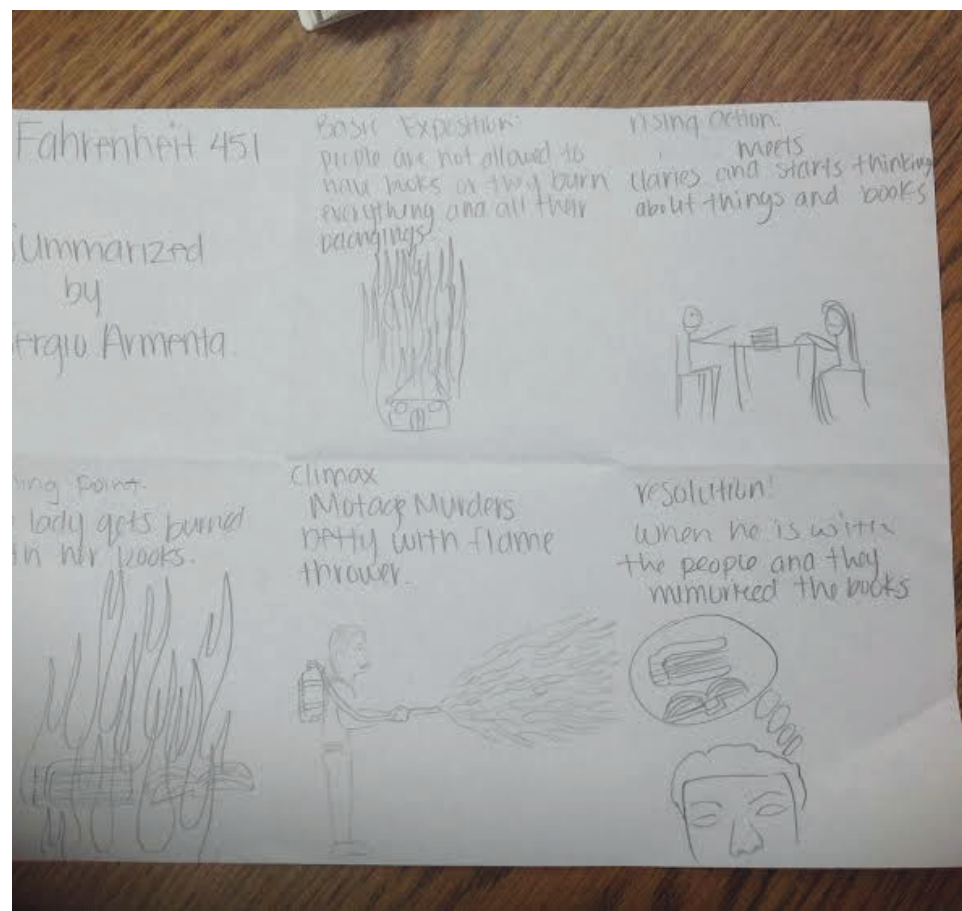 Fahrenheit 451
Summarized
by
ergio Armenta
Basic Exposition:
people are not allowed to
have books or they burn
everything and all their
belongings
rising action.
meets
Claries and starts thinking
about things and books
ing point.
lady gets burned
in her books.
Climax
Motage Murders
betty with flame
thrower.
resolution:
when he is with
the people and they
mimurized the books